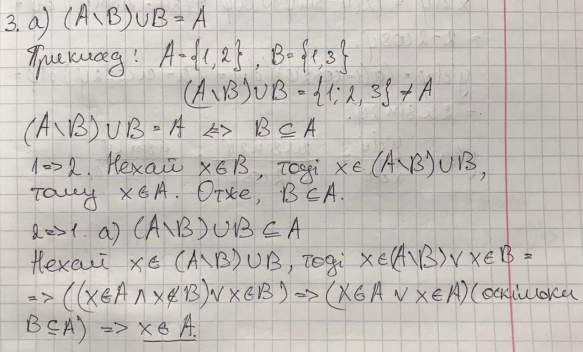 3. а) (A\B)∪B = A
Приклад: A={1,2}, B={1,3}
(A\B)∪B = {1; 2, 3} ≠ A
(A\B)∪B = A <=> B⊆A
1=>2. Нехай x∈B, тоді x∈(A\B)∪B,
тому x∈A. Отже, B⊆A.
2=>1. а) (A\B)∪B⊆A
Нехай x∈(A\B)∪B, тоді x∈(A\B)∨x∈B =
=> ((x∈A ∧ x∉B)∨x∈B) => (x∈A ∨ x∈A)(оскільки
B⊆A) => x∈A.